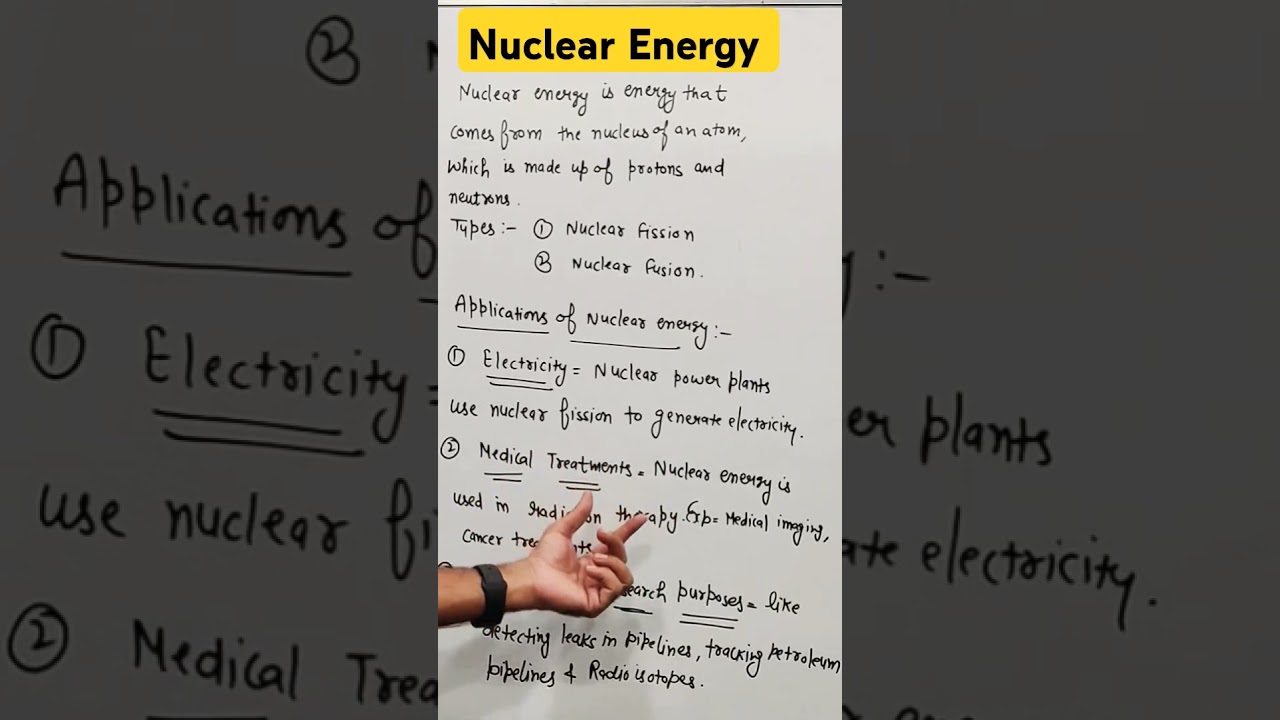 Nuclear Energy
Nuclear energy is energy that
comes from the nucleus of an atom,
which is made up of protons and
neutrons.
Types :- ① Nuclear fission
② Nuclear fusion.
Applications of Nuclear energy :-
① Electricity = Nuclear power plants
use nuclear fission to generate electricity.
② Medical Treatments = Nuclear energy is
used in therapy. Exp = Medical imaging,
cancer
purposes = like
detecting leaks in pipelines, tracking petroleum
pipelines & Radio isotopes.